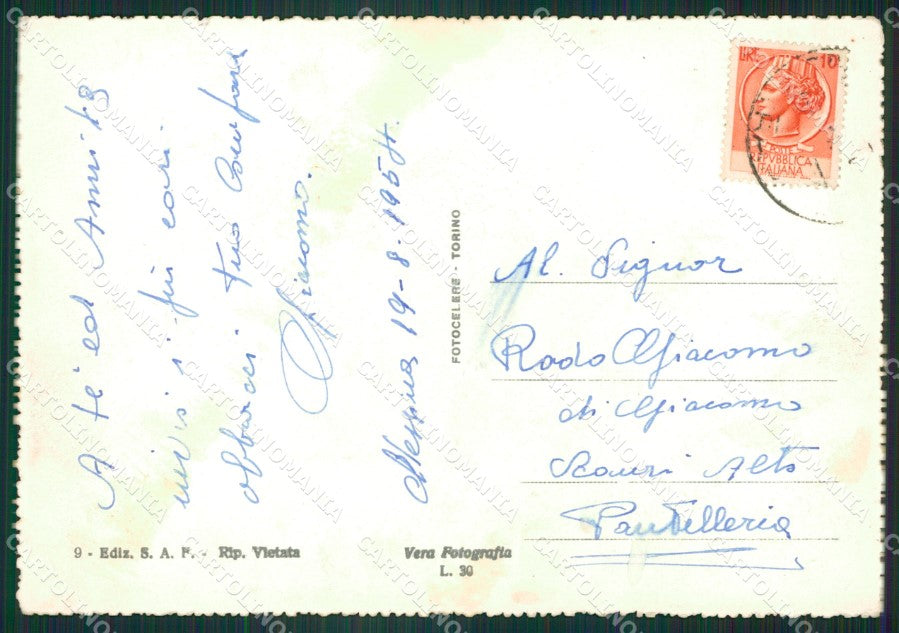 A te ed Amici
miei i più cari
abbracci. tuo Compare
Giacomo.
Messina 19-8-1954.
FOTOCELERE - TORINO
LIRE 10
POSTE
REPVBBLICA
ITALIANA
Al. Signor
Rodo Giacomo
di Giacomo
Scauri Alto
Pantelleria
9 - Ediz. S. A. F. - Rip. Vietata
Vera Fotografia
L. 30
CARTOLINOMANIA